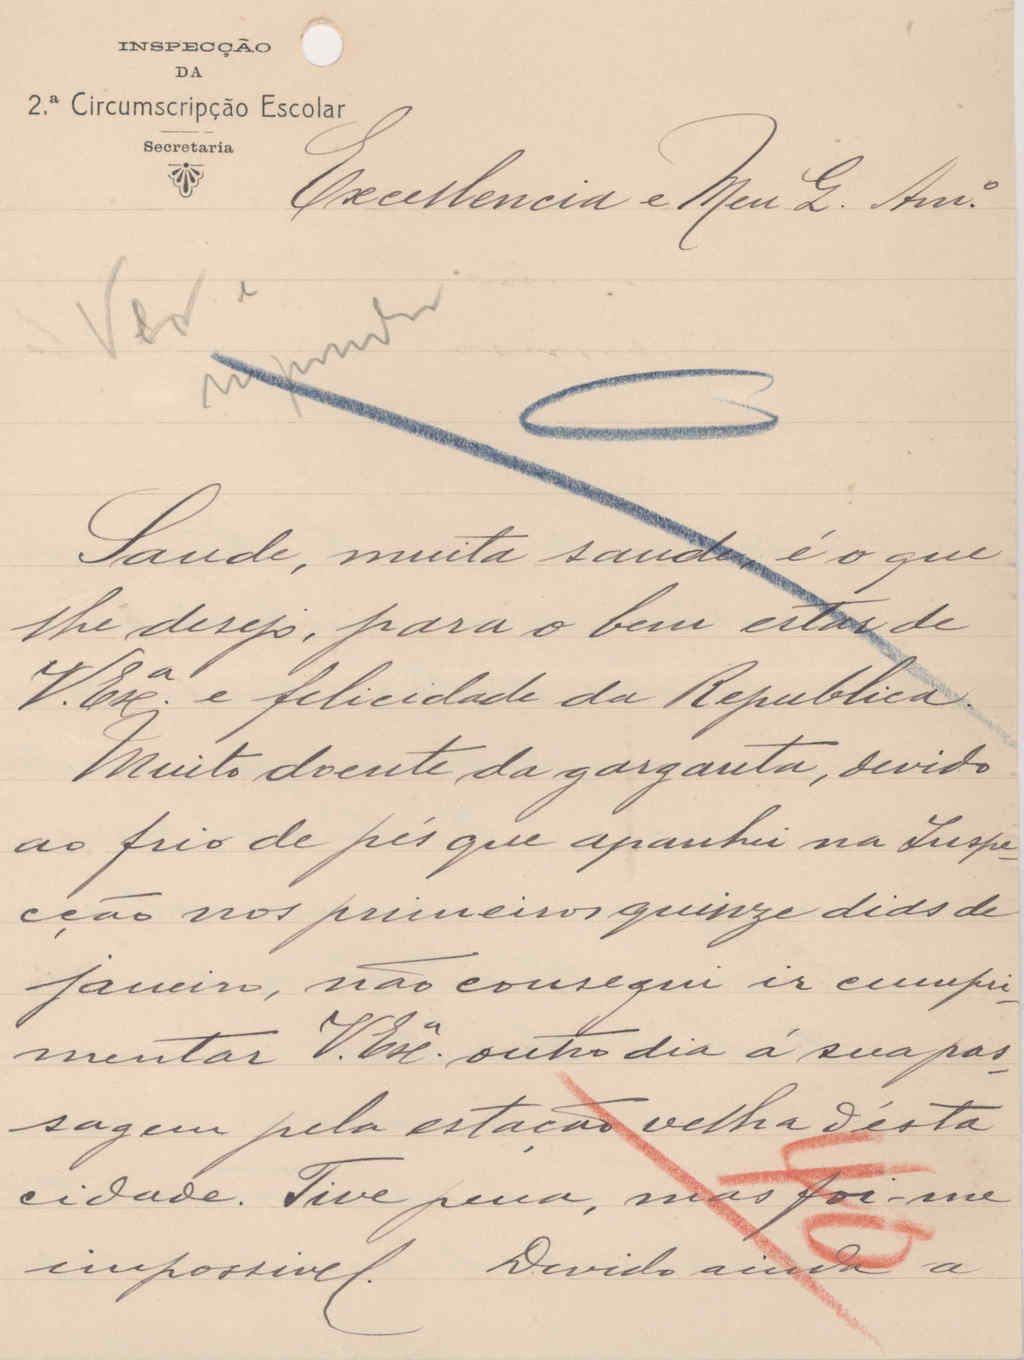 INSPECÇÃO
DA
2.ª Circumscripção Escolar
Secretaria
Excellencia e Meu G. Am.º
Ver e
responder
Saude, muita saude, é o que
lhe desejo, para o bem estar de
V. Exª. e felicidade da Republica.
Muito doente da garganta, devido
ao frio de pés que apanhei na Inspe-
cção nos primeiros quinze dias de
janeiro, não consegui ir cumpri-
mentar V. Exª. outro dia á sua pas-
sagem pela estação velha d'ésta
cidade. Tive pena, mas foi-me
impossivel. Devido ainda a